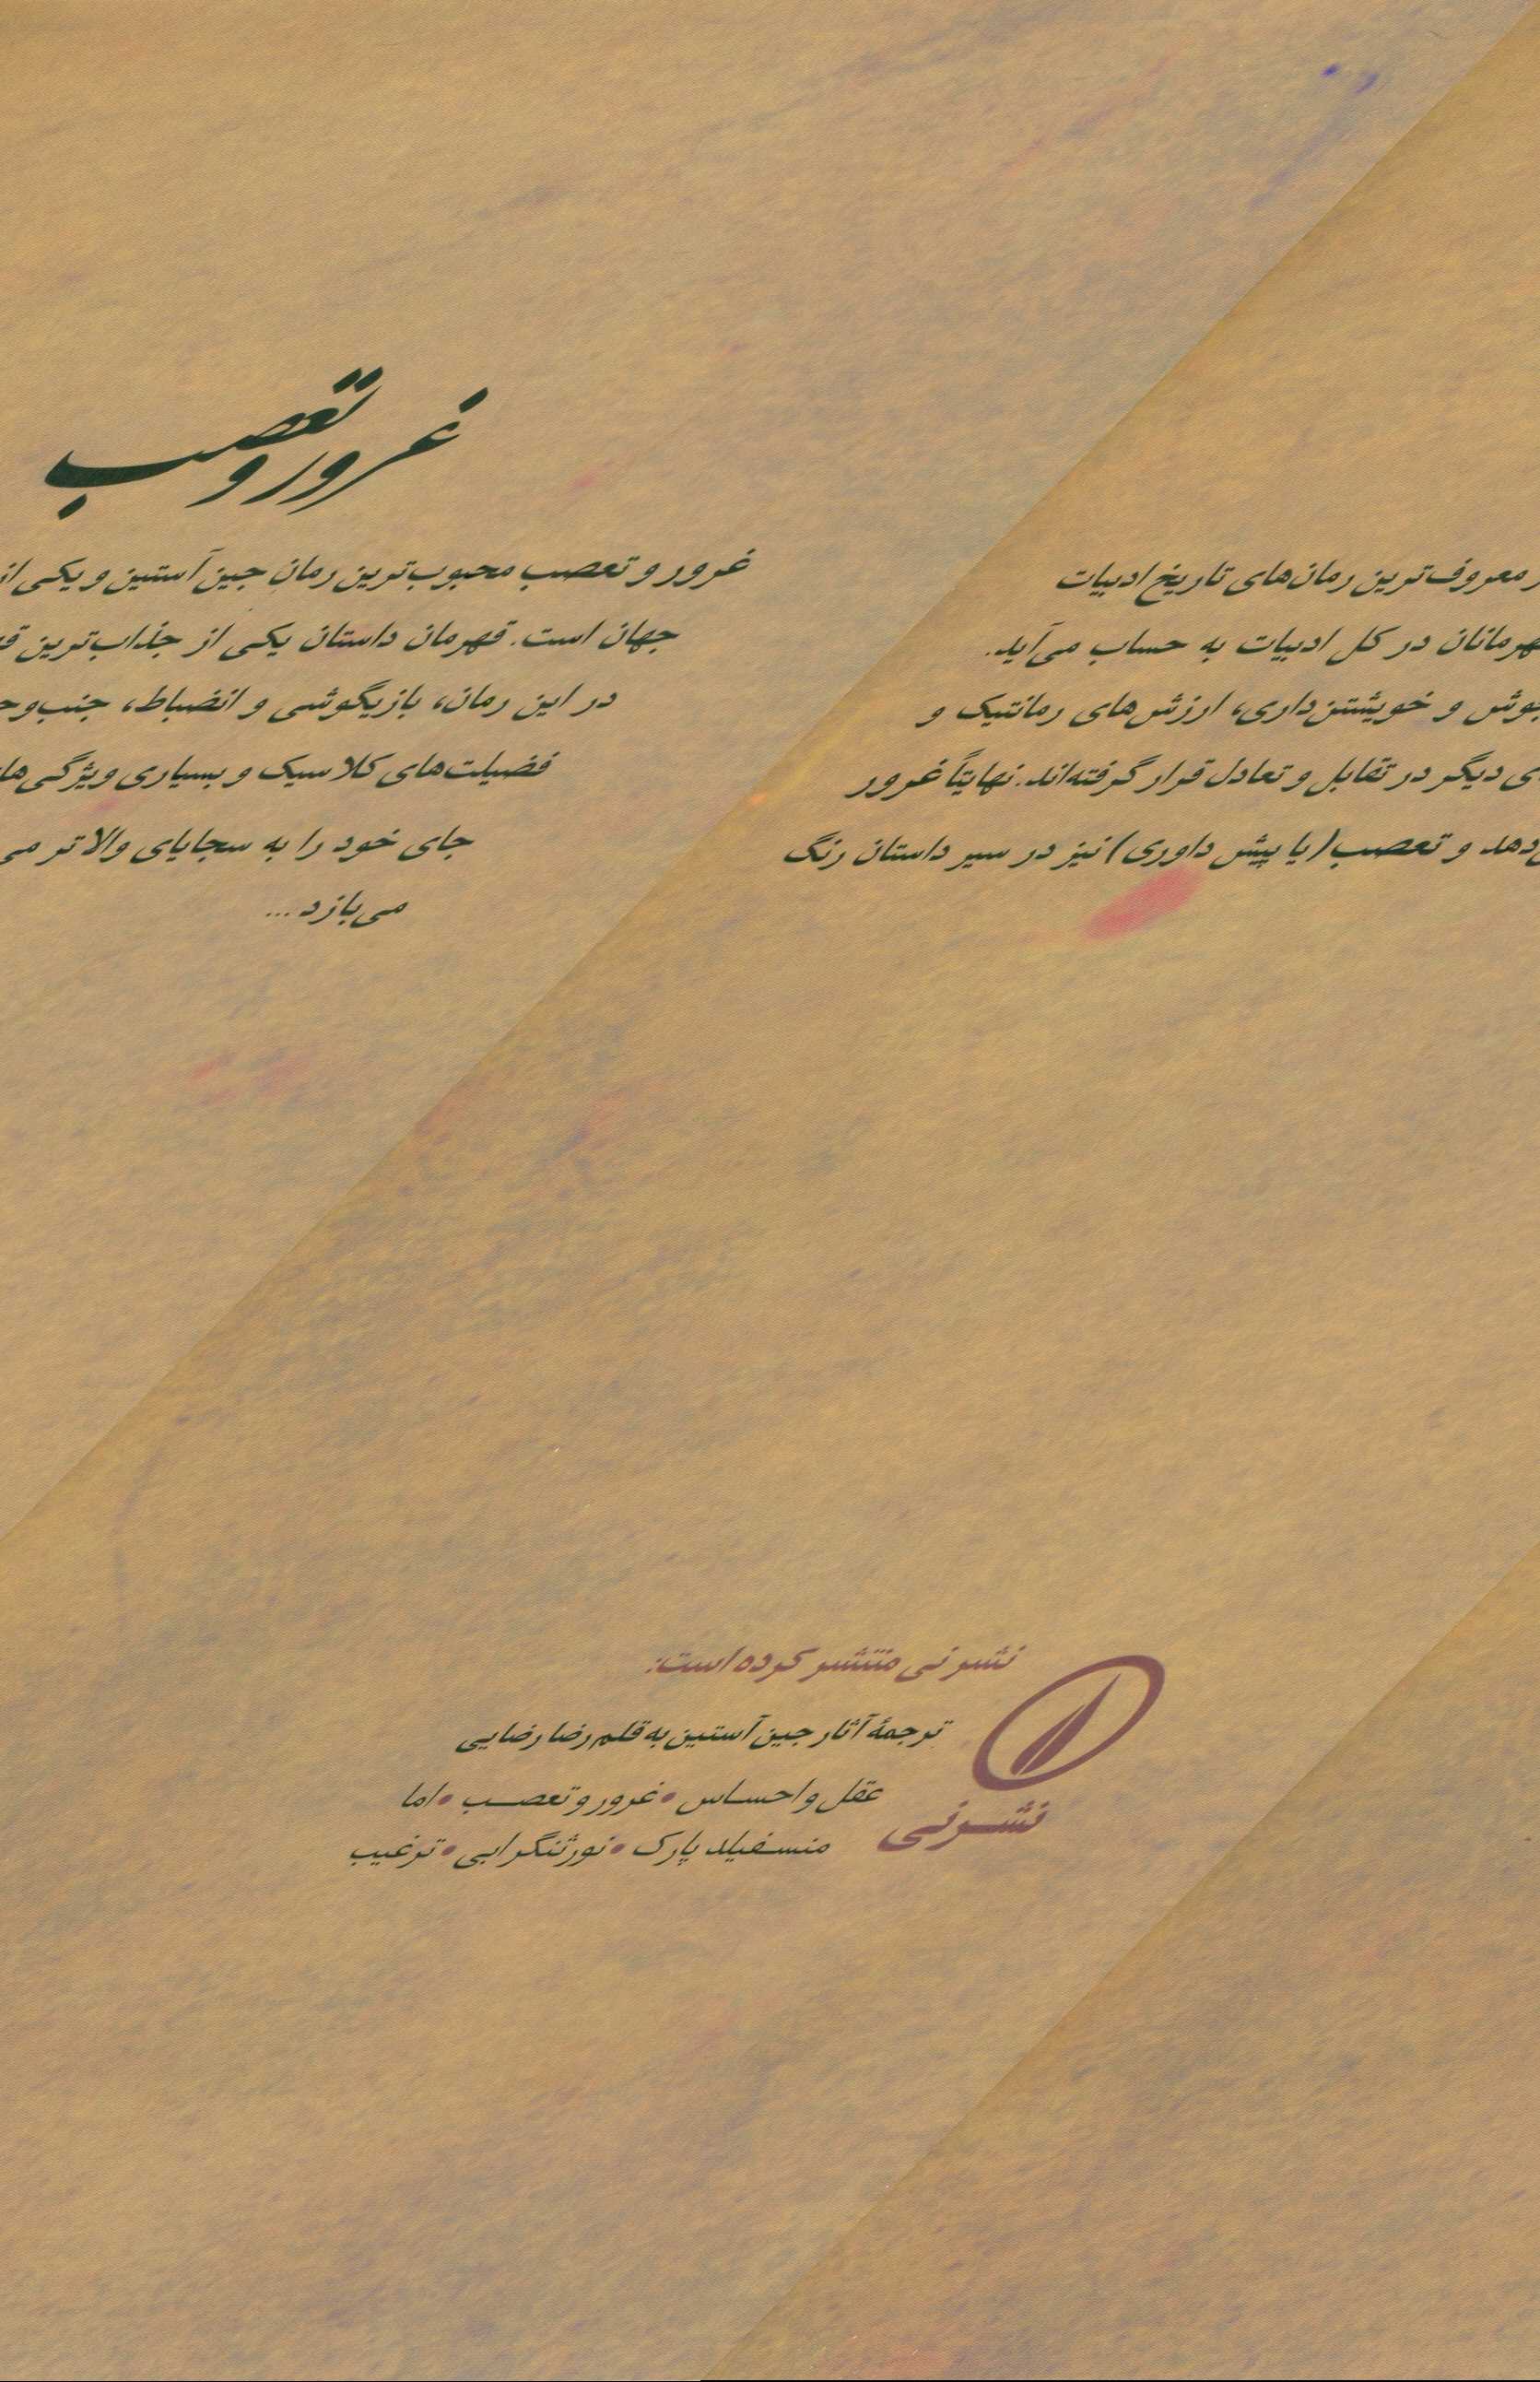 غرور و تعصب
غرور و تعصب محبوب‌ترین رمان جین آستین و یکی از معروف‌ترین رمان‌های تاریخ ادبیات
جهان است. قهرمان داستان یکی از جذاب‌ترین قهرمانان در کل ادبیات به حساب می‌آید.
در این رمان، بازیگوشی و انضباط، جنب‌وجوش و خویشتن‌داری، ارزش‌های رمانتیک و
فضیلت‌های کلاسیک و بسیاری ویژگی‌های دیگر در تقابل و تعادل قرار گرفته‌اند. نهایتاً غرور
جای خود را به سجایای والاتر می‌دهد و تعصب (یا پیش داوری) نیز در سیر داستان رنگ
می‌بازد...
نشر نی منتشر کرده است:
ترجمهٔ آثار جین آستین به قلم رضا رضایی
عقل و احساس • غرور و تعصب • اما
منسفیلد پارک • نورثنگر ابی • ترغیب
نشر نی